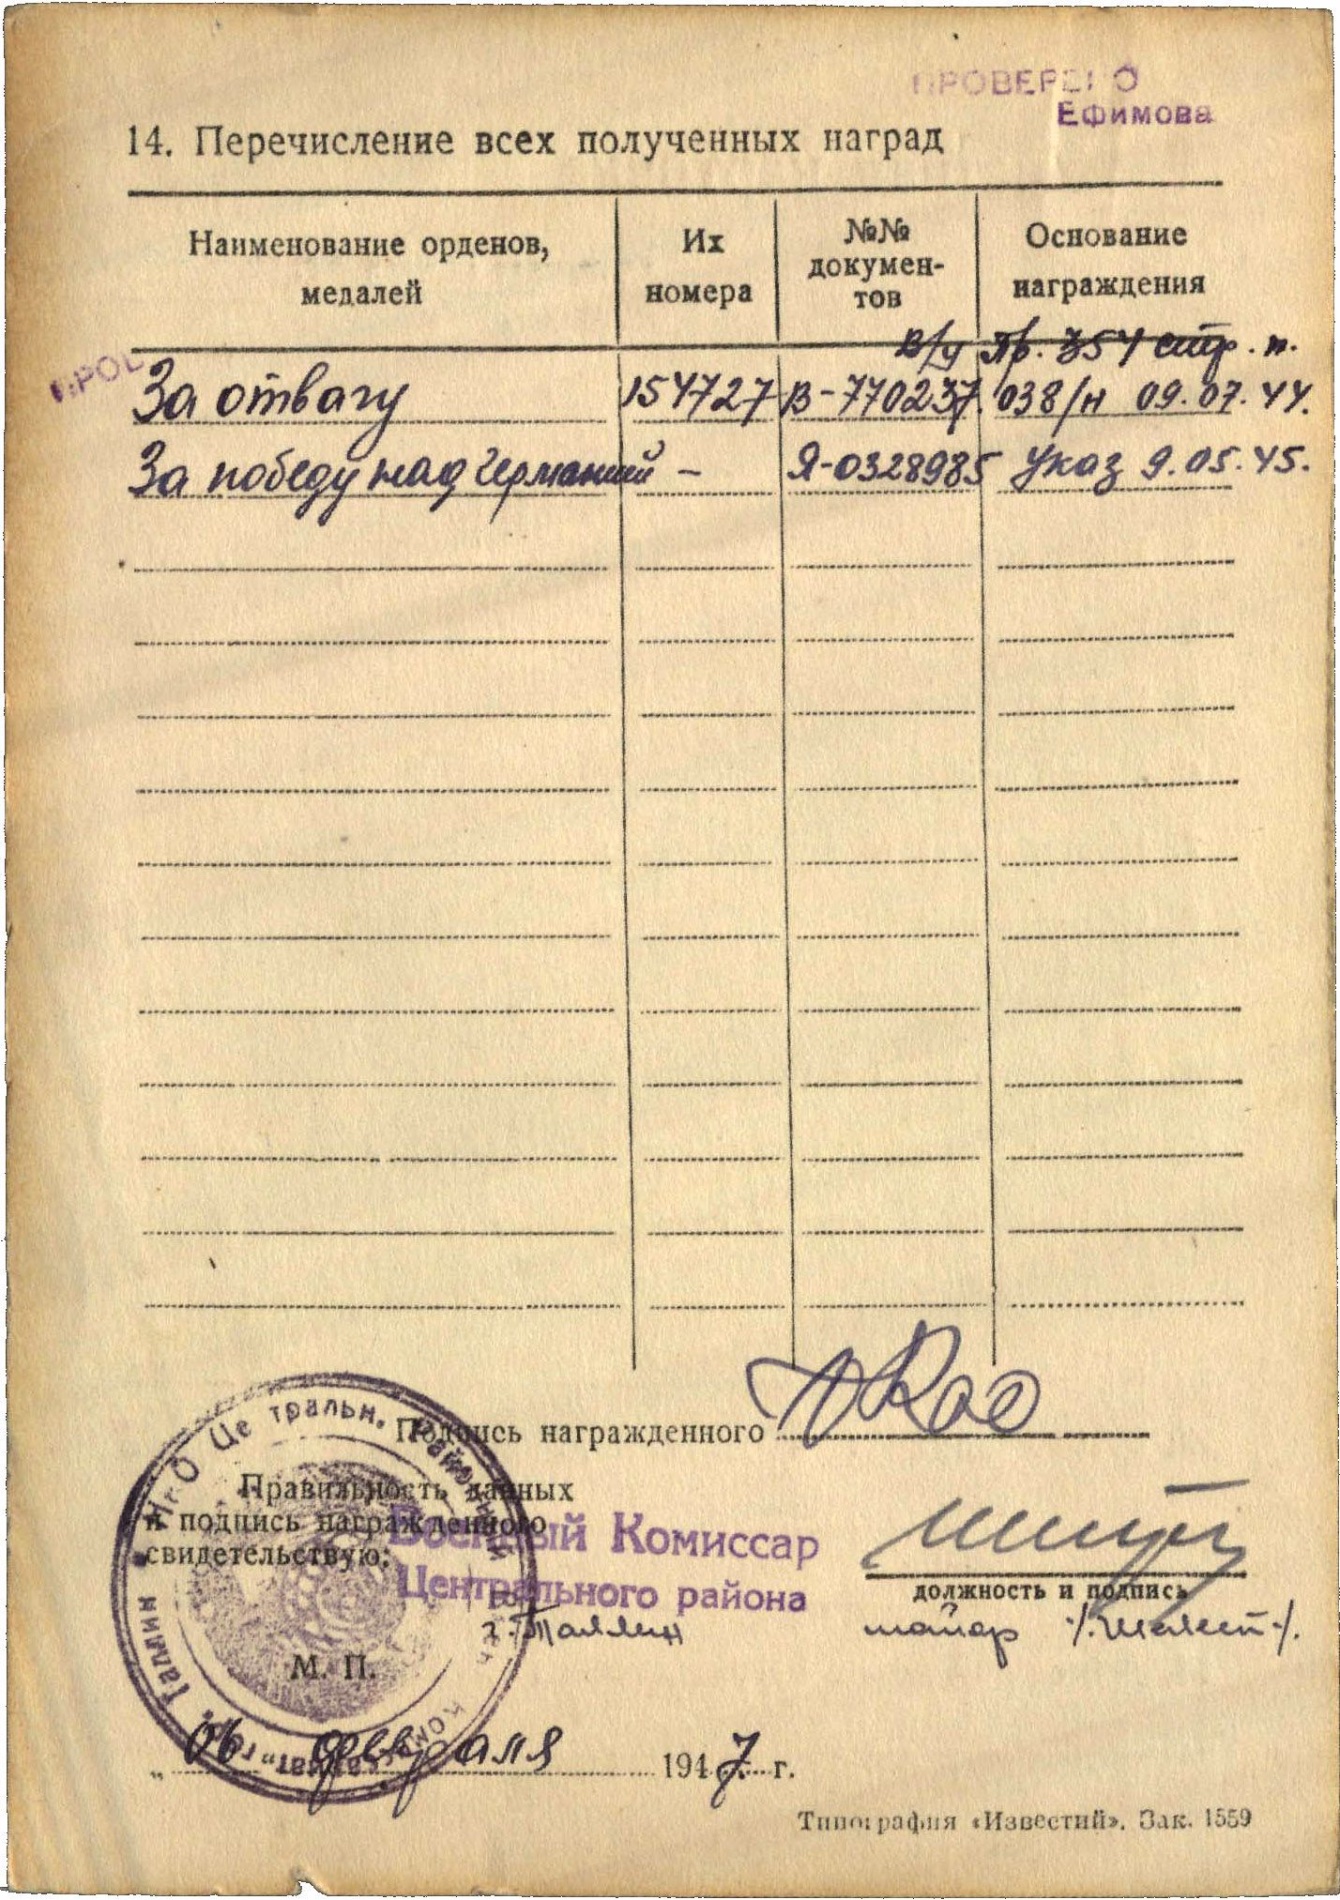 ПРОВЕРЕНО
Ефимова
14. Перечисление всех полученных наград
Наименование орденов, медалей
Их номера
№№ докумен-тов
Основание награждения
в/у Пр. 354 стр. п.
За отвагу 154727 В-770237 038/н 09.07.44.
За победу над Германией - Я-0328985 Указ 9.05.45.
Подпись награжденного
Правильность данных
и подпись награжденного
свидетельствую:
Военный Комиссар
Центрального района
г. Таллин
должность и подпись
майор
М. П.
„06 февраля 1947 г.
Типография «Известий». Зак. 1559